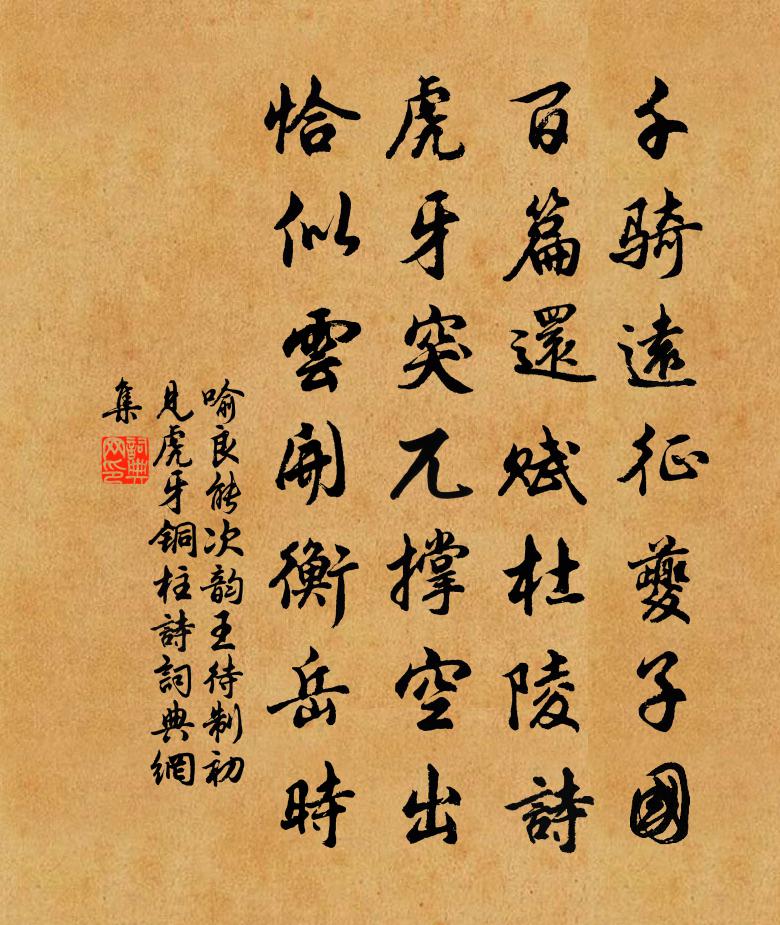 千骑遠征夔子國
百篇還赋杜陵詩
虎牙突兀撑空出
恰似雲開衡岳時
喻良能次韵王待制初
見虎牙銅柱詩詞典網
集
詞典網印